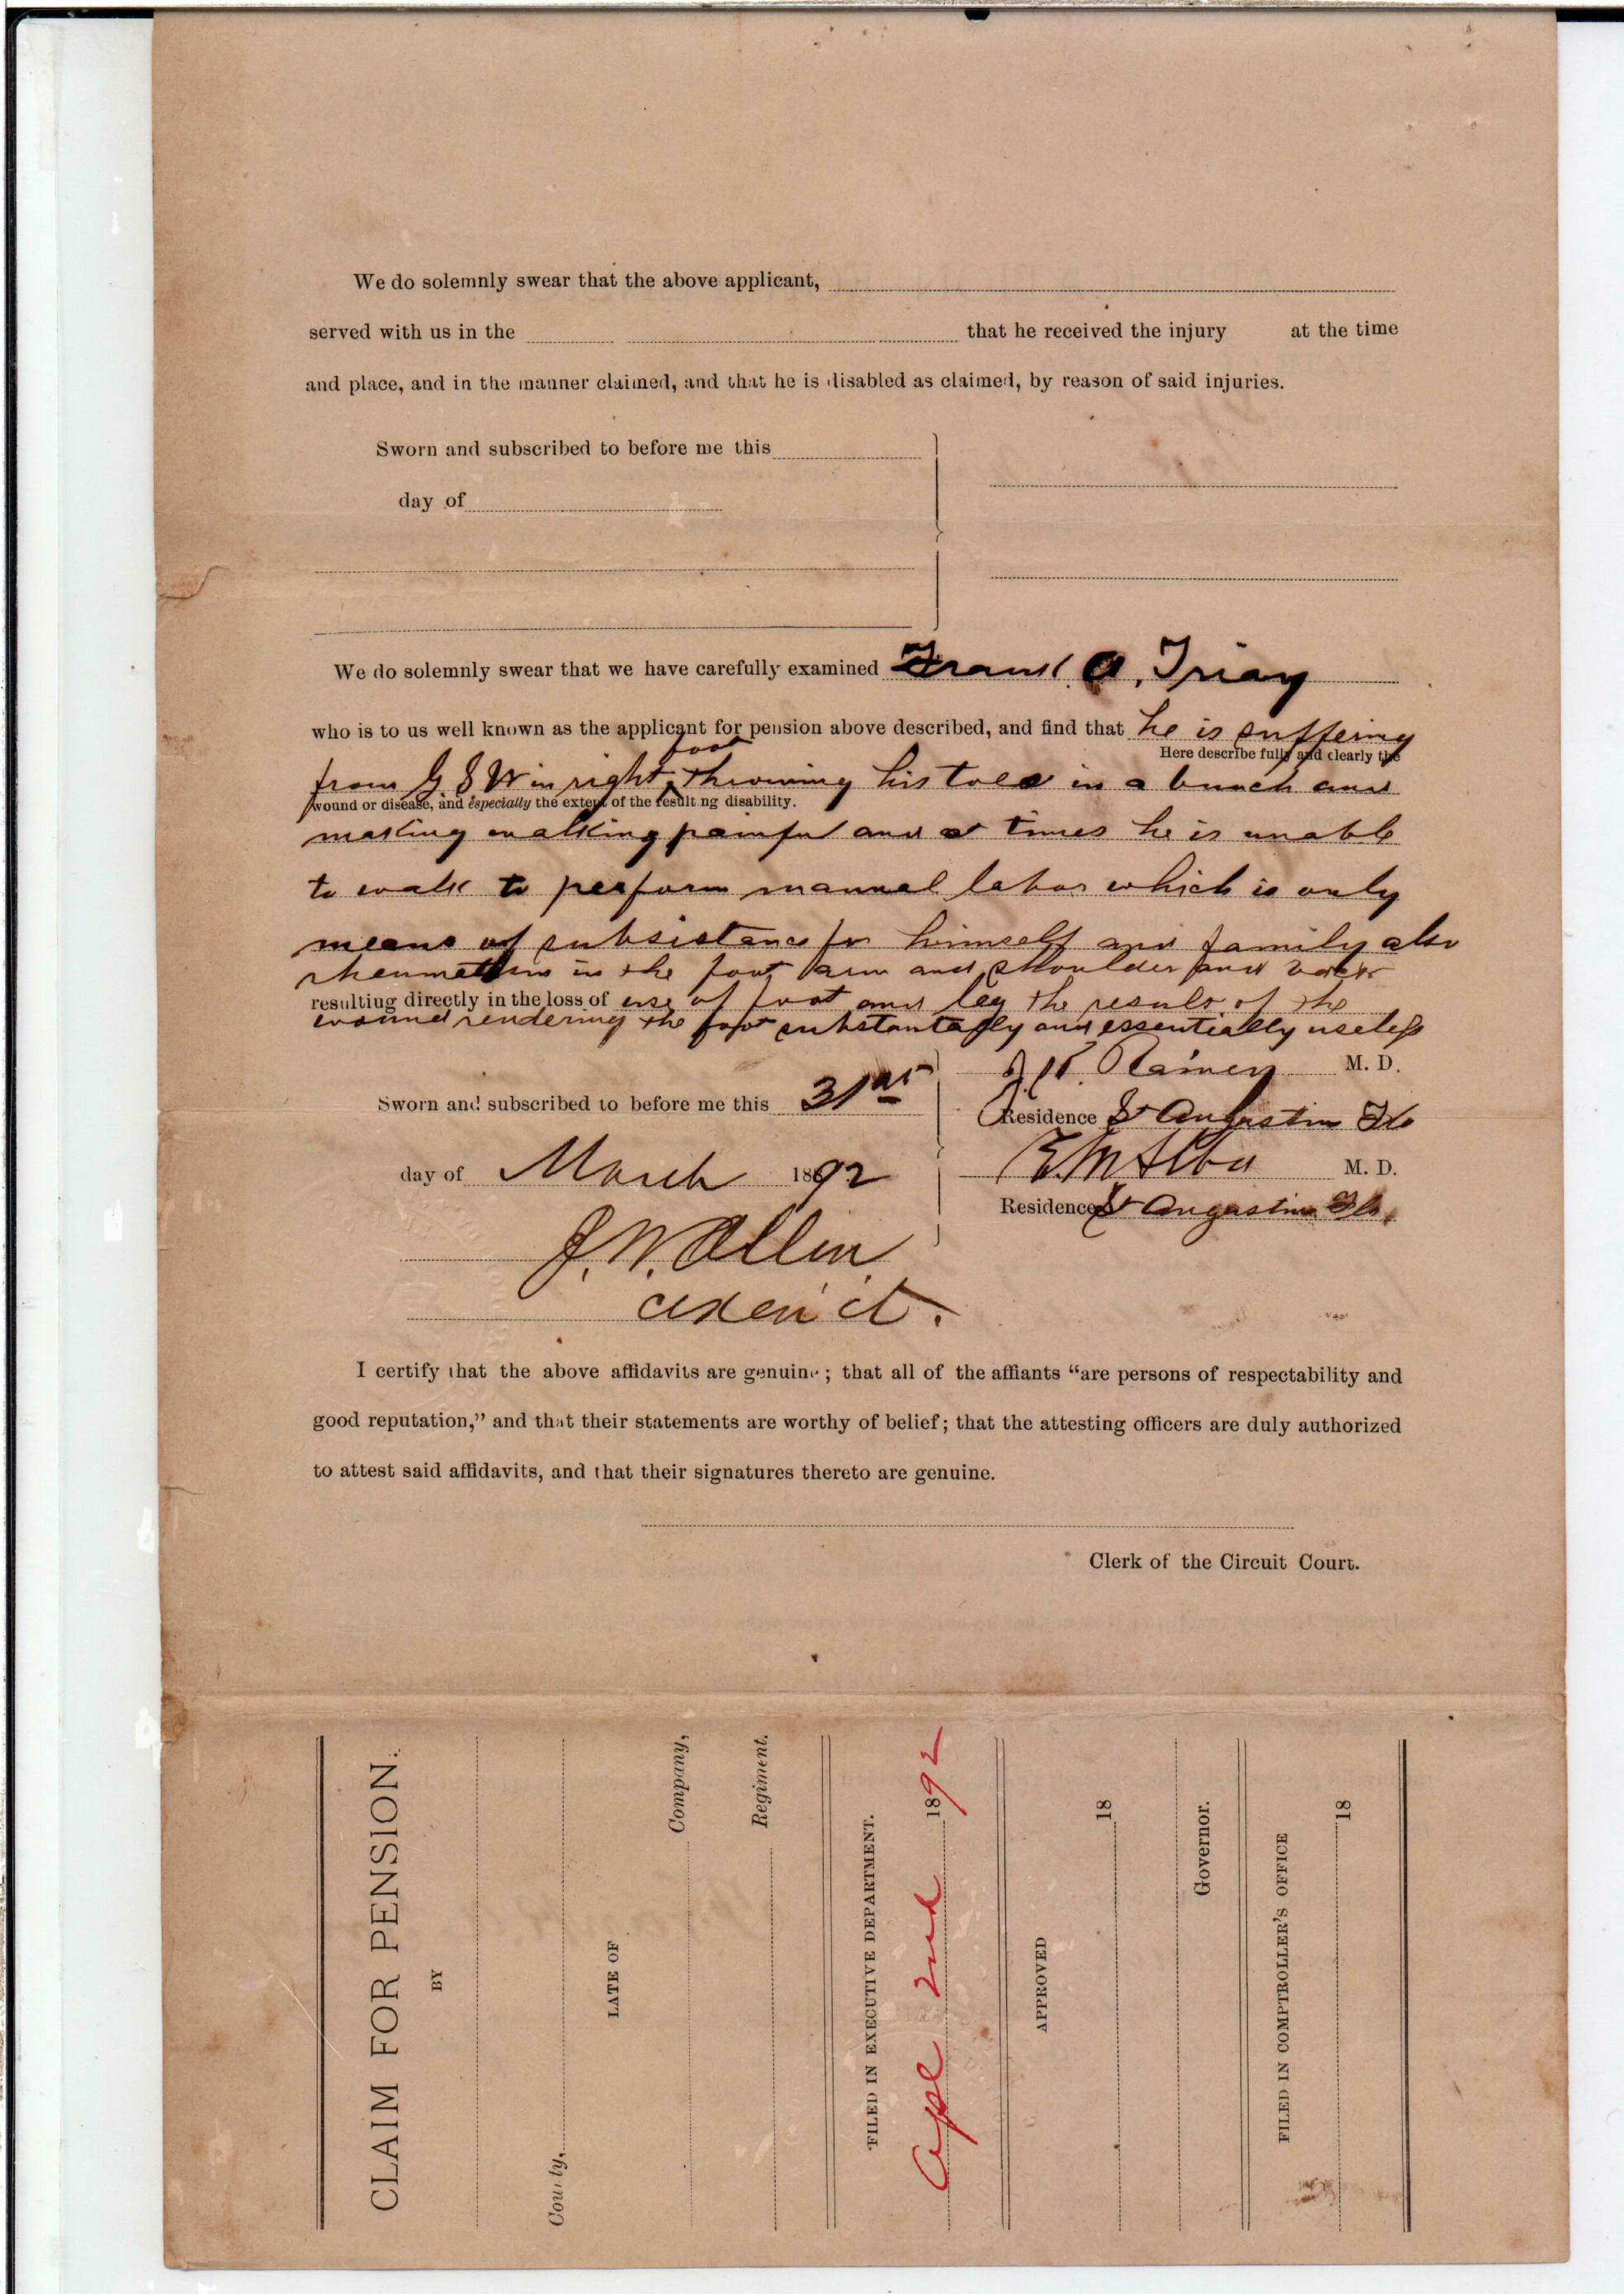 We do solemnly swear that the above applicant,
served with us in the that he received the injury at the time
and place, and in the manner claimed, and that he is disabled as claimed, by reason of said injuries.
Sworn and subscribed to before me this
day of
We do solemnly swear that we have carefully examined Frank A. Triay
who is to us well known as the applicant for pension above described, and find that he is suffering
Here describe fully and clearly the
foot
from G S W in right throwing his toes in a bunch and
wound or disease, and especially the extent of the result ng disability.
making walking painful and at times he is unable
to walk to perform manual labor which is only
means of subsistance for himself and family also
rheumatism in the foot arm and shoulder and back
resulting directly in the loss of use of foot and leg the result of the
wound rendering the foot substantially and essentially useless
J. K. Rainey M. D.
Sworn and subscribed to before me this 31st
Residence St Augustine Fla
E M Alba M. D.
day of March 1892
Residence St Augustine Fla.
J. W. Allen
I certify that the above affidavits are genuine; that all of the affiants “are persons of respectability and
good reputation,” and that their statements are worthy of belief; that the attesting officers are duly authorized
to attest said affidavits, and that their signatures thereto are genuine.
Clerk of the Circuit Court.
CLAIM FOR PENSION.
BY
County,
LATE OF
Company,
Regiment.
FILED IN EXECUTIVE DEPARTMENT.
Apl 2nd 1892
APPROVED
18
Governor.
FILED IN COMPTROLLER'S OFFICE
18